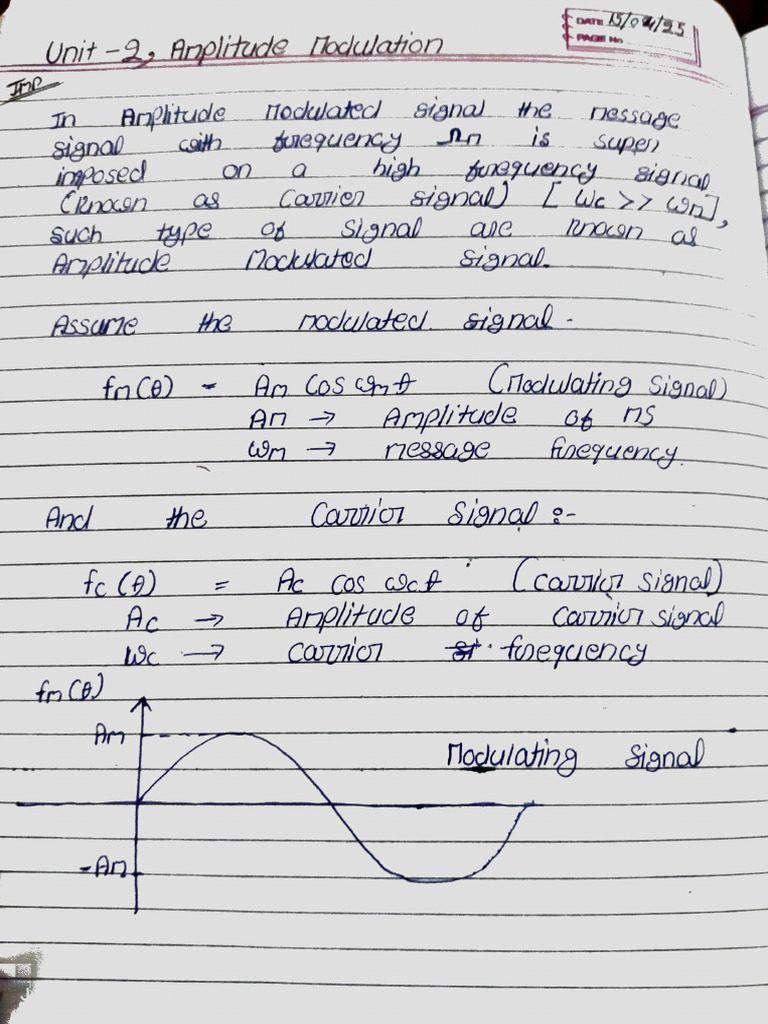 DATE 15/04/25
PAGE No.
Unit - 2, Amplitude Modulation
Imp
In Amplitude Modulated signal the message
signal with frequency Ωm is super
imposed on a high frequency signal
(known as Carrier signal) [ωc >> ωm],
such type of signal are known as
Amplitude Modulated signal.
Assume the modulated signal -
fm(t) = Am Cos ωmt (Modulating Signal)
Am → Amplitude of ms
ωm → message frequency.
And the Carrior Signal :-
fc(t) = Ac cos ωc.t (carrior signal)
Ac → Amplitude of Carrior signal
ωc → carrior frequency
fm(t)
Am
Modulating signal
-Am